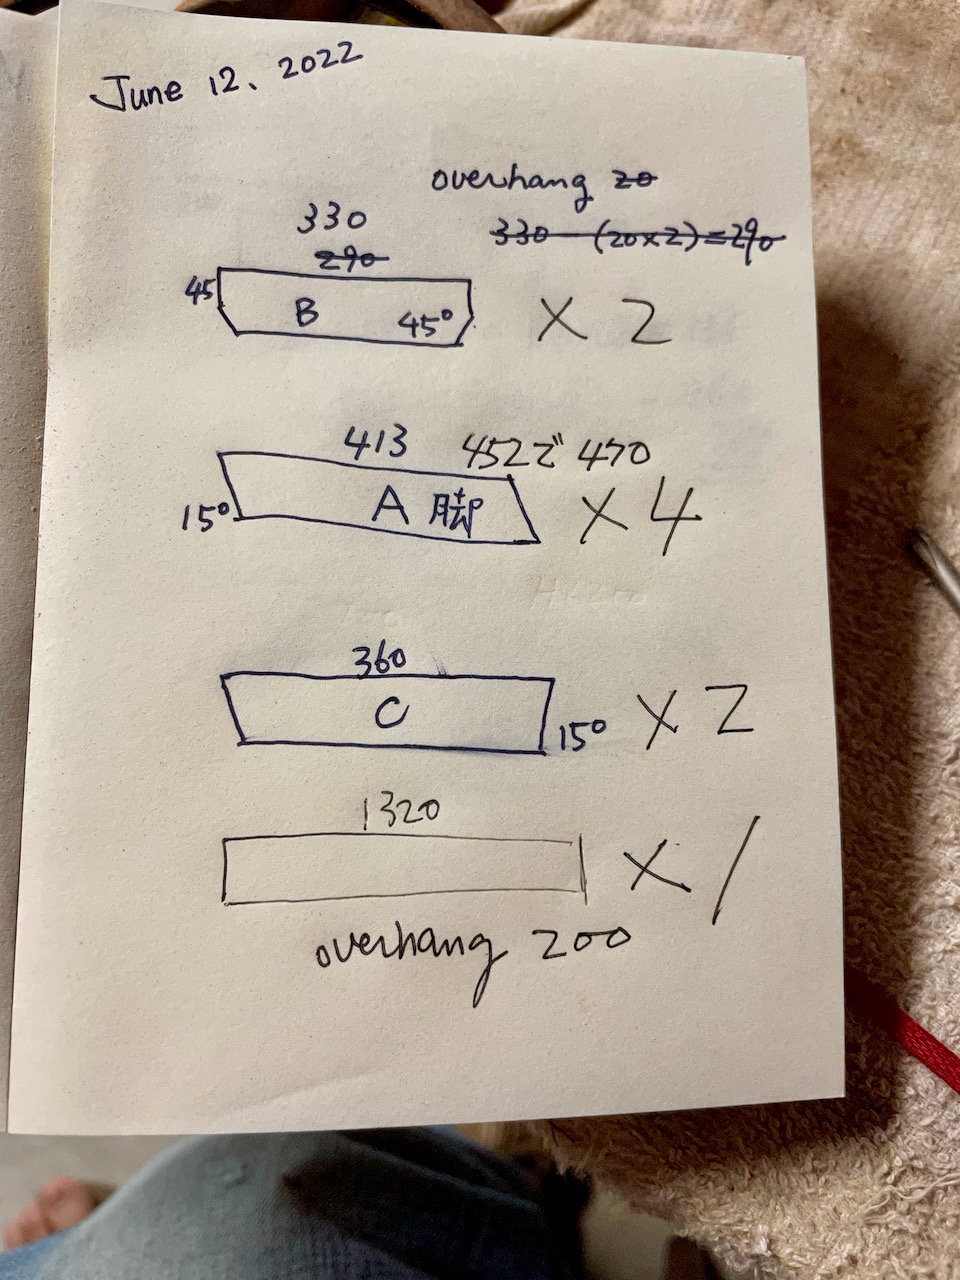 June 12, 2022
overhang 20
330 - (20×2)=290
330
290
45
B
45°
× 2
413
452で 470
15°
A 脚
× 4
360
C
15°
× 2
1320
× 1
overhang 200